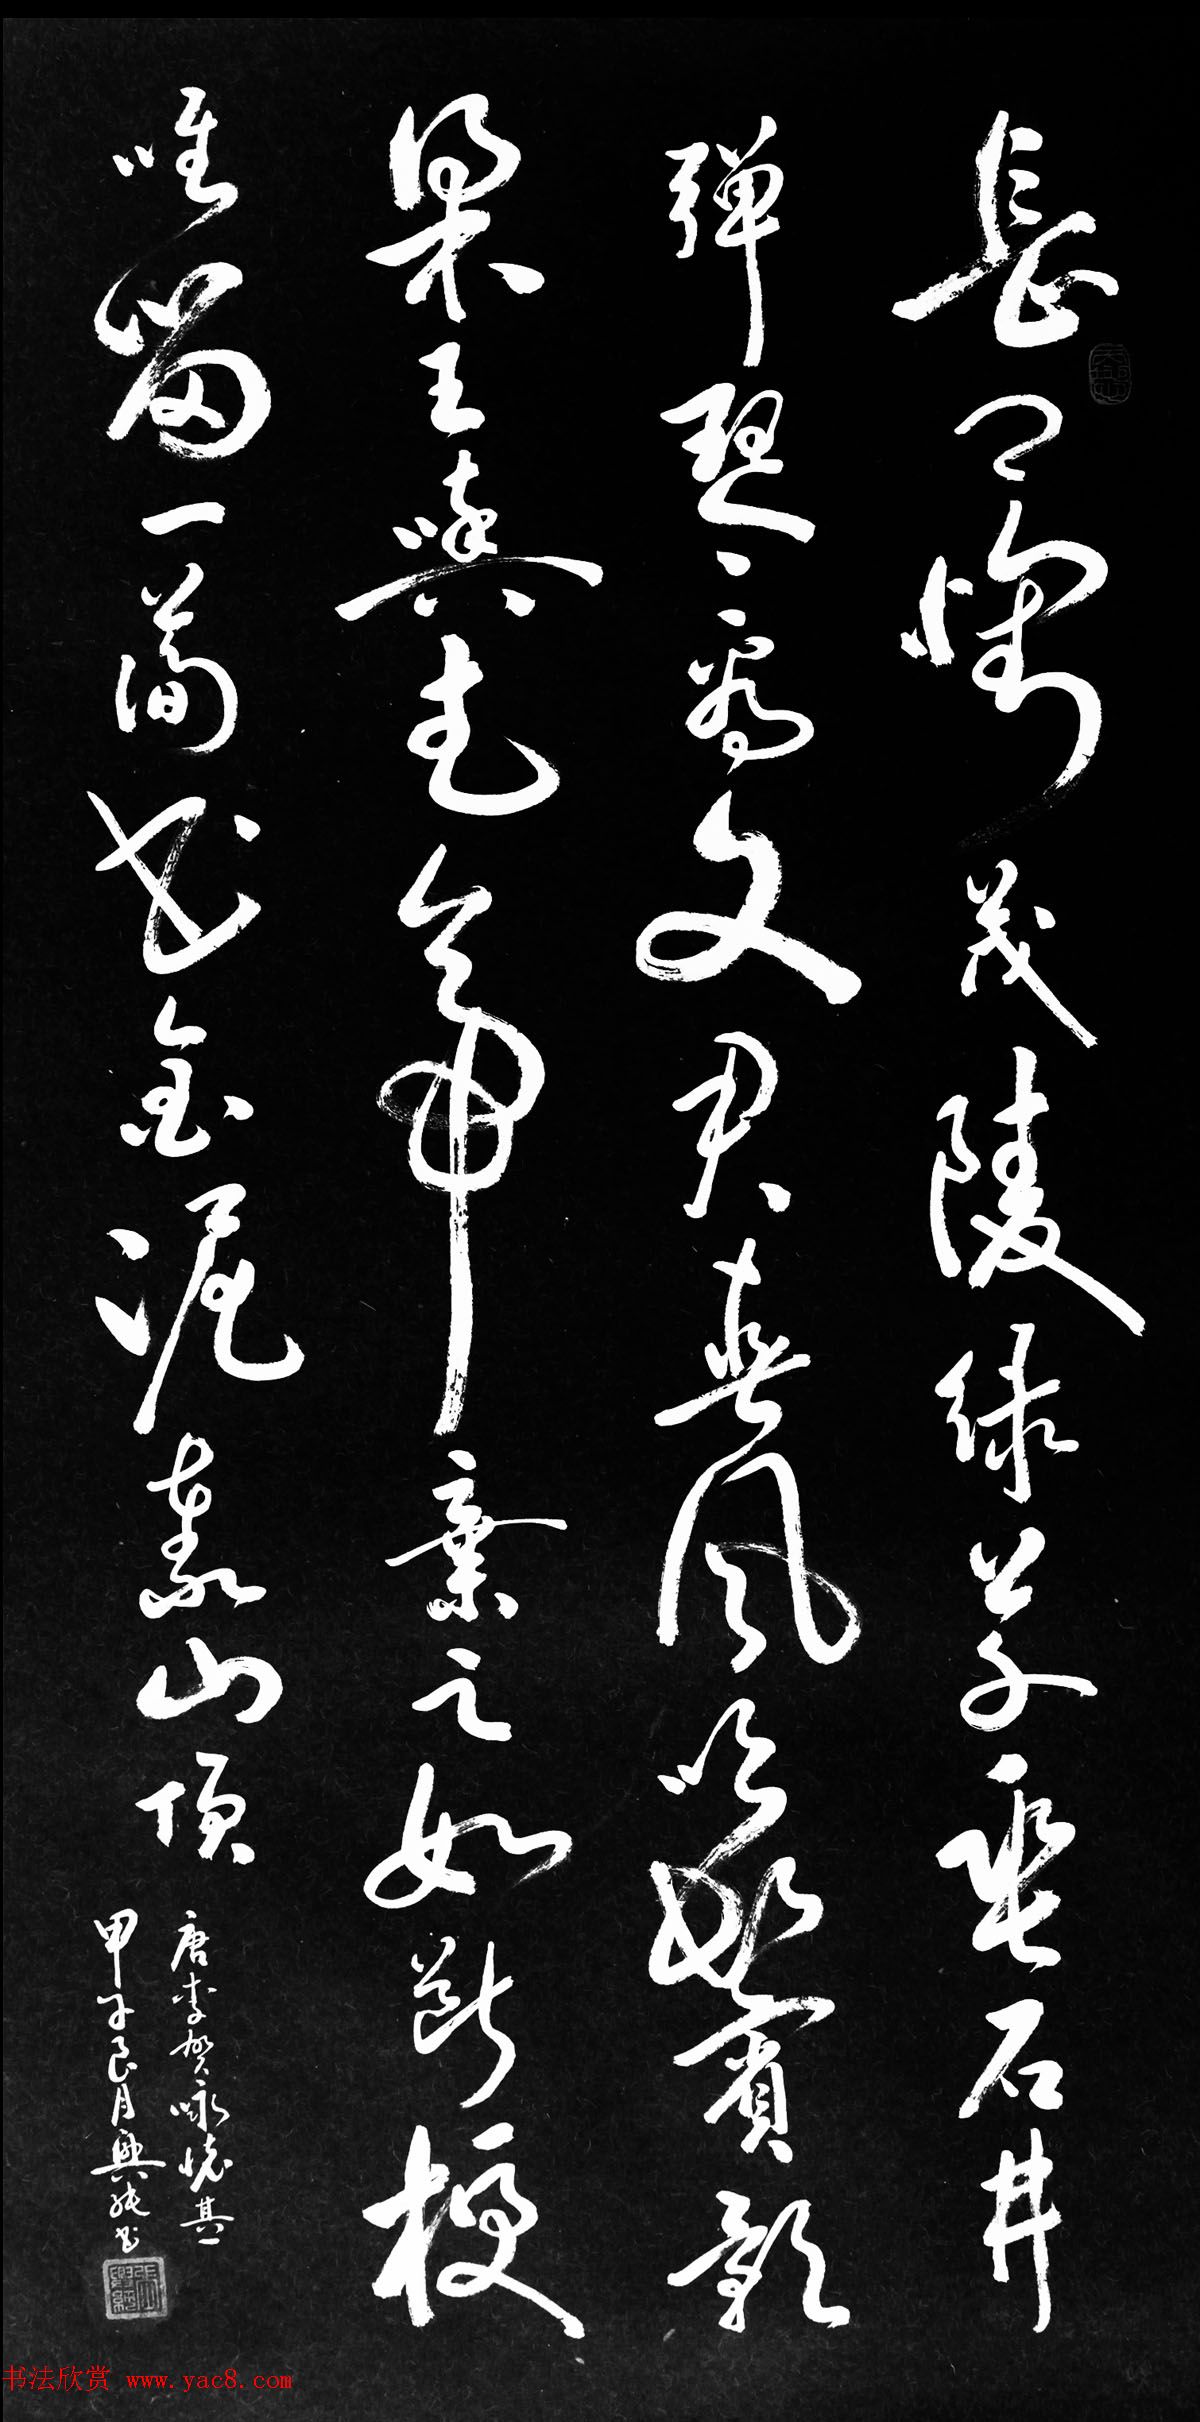 長卿懷茂陵綠草垂石井
彈琴看文君春風吹鬢影
梁王與武帝棄之如斷梗
唯留一簡書金泥泰山頂
唐李賀咏懷其一
甲子良月書
书法欣赏 www.yac8.com